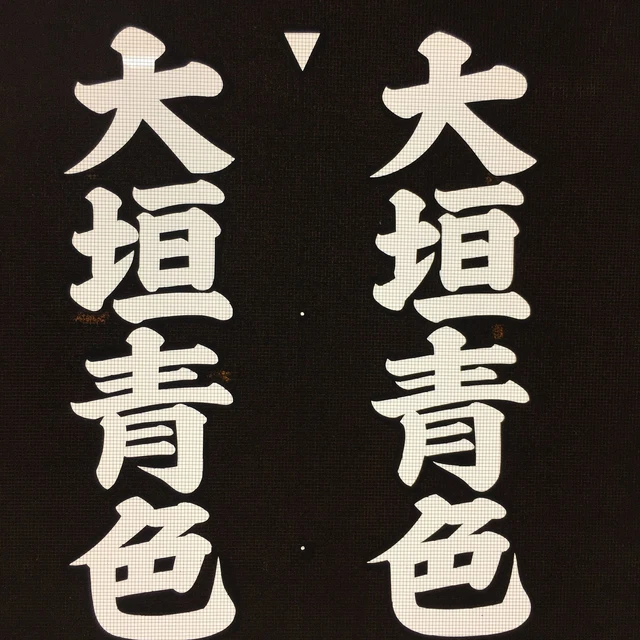 大垣青色
大垣青色